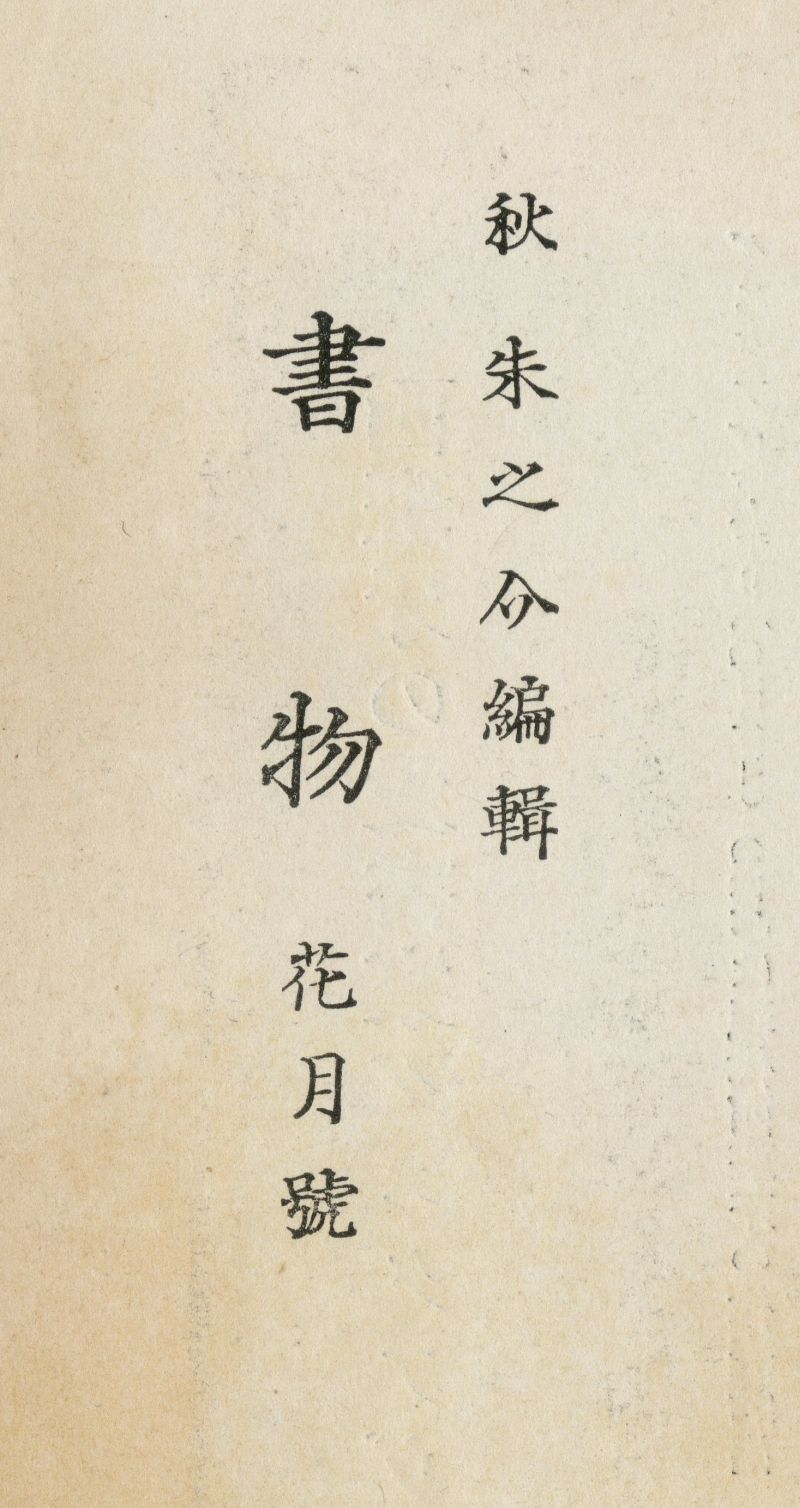 秋朱之介編輯
書物花月號